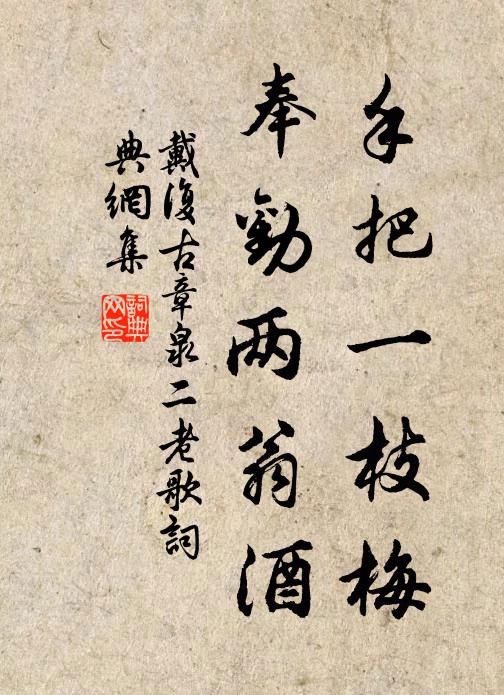 手把一枝梅
奉勸两翁酒
戴復古章泉二老歌詞
典網集
詞典网印